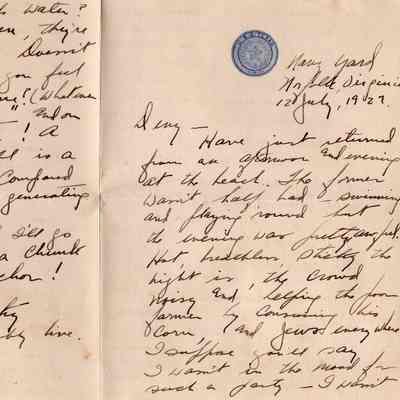 to water?
en, they're
Doesn't
you feel
(Whatever
And on
! A
is a
Compound
generating
I'll go
a Chunk
chor!
by line.
Navy Yard
Norfolk, Virginia
12 July, 1927.
Deny —
Have just returned
from an afternoon and evening
at the beach. The former
wasn't half bad – swimming
and playing 'round but
the evening was pretty awful.
Hot, breathless, sticky the
night is, the crowd
noisy and, helping the poor
farmer by consuming his
corn, and Jews everywhere
I suppose you'll say
I wasn't in the mood for
such a party – I wasn't